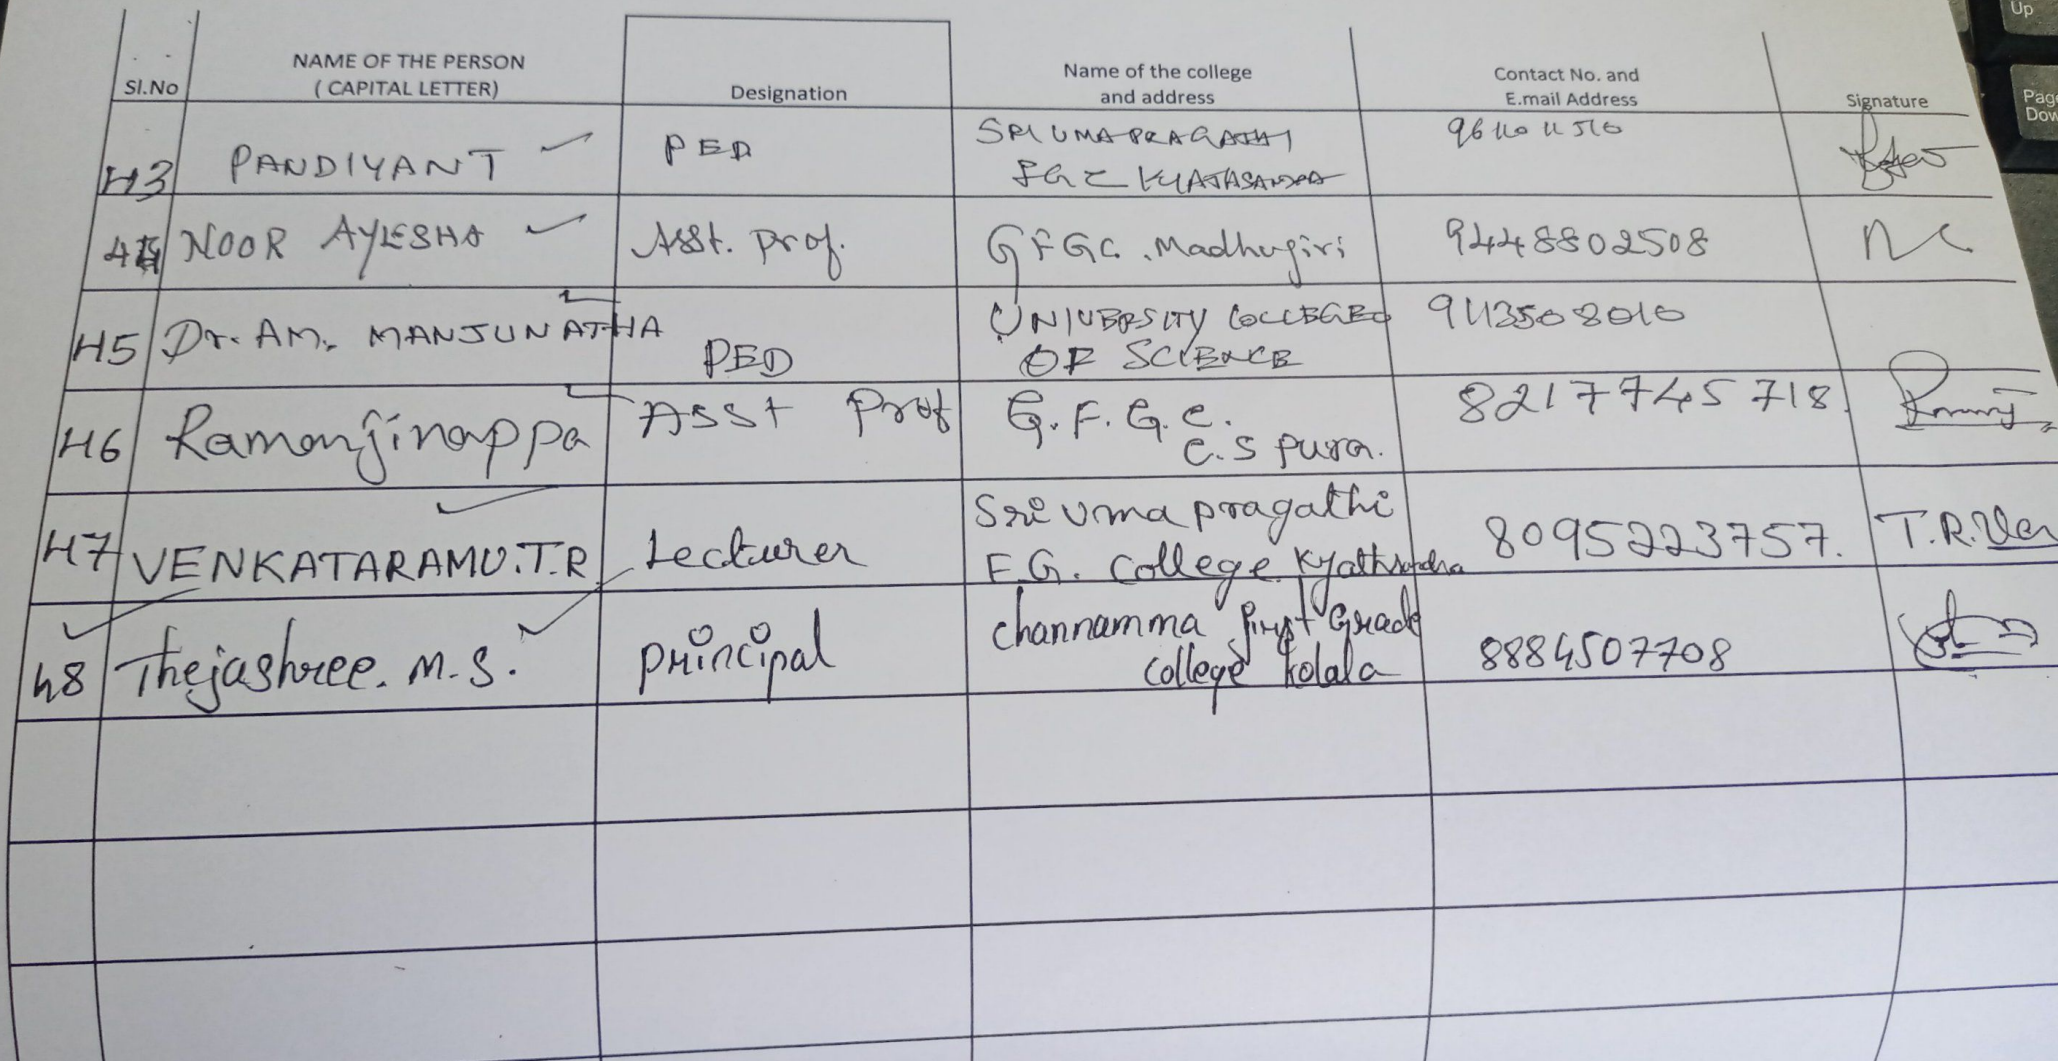 Up
Page
Down
Sl.No
NAME OF THE PERSON
( CAPITAL LETTER)
Designation
Name of the college
and address
Contact No. and
E.mail Address
Signature
43 PANDIYAN T PED SRI UMA PRAGATHI
FGC KYATASANDRA
44 NOOR AYLESHA Asst. Prof. GFGC. Madhugiri 9448802508
45 Dr. AM. MANJUNATHA PED UNIVERSITY COLLEGE
OF SCIENCE
9113508010
46 Ramanjinappa ASST Prof G.F.G.C.
C.S pura.
8217745718
47 VENKATARAMU.T.R Lecturer Sri uma pragathi
F.G. College
8095223757. T.R.Ven
48 Thejashree. M.S. Principal Channamma First Grade
College Kolala
8884507708